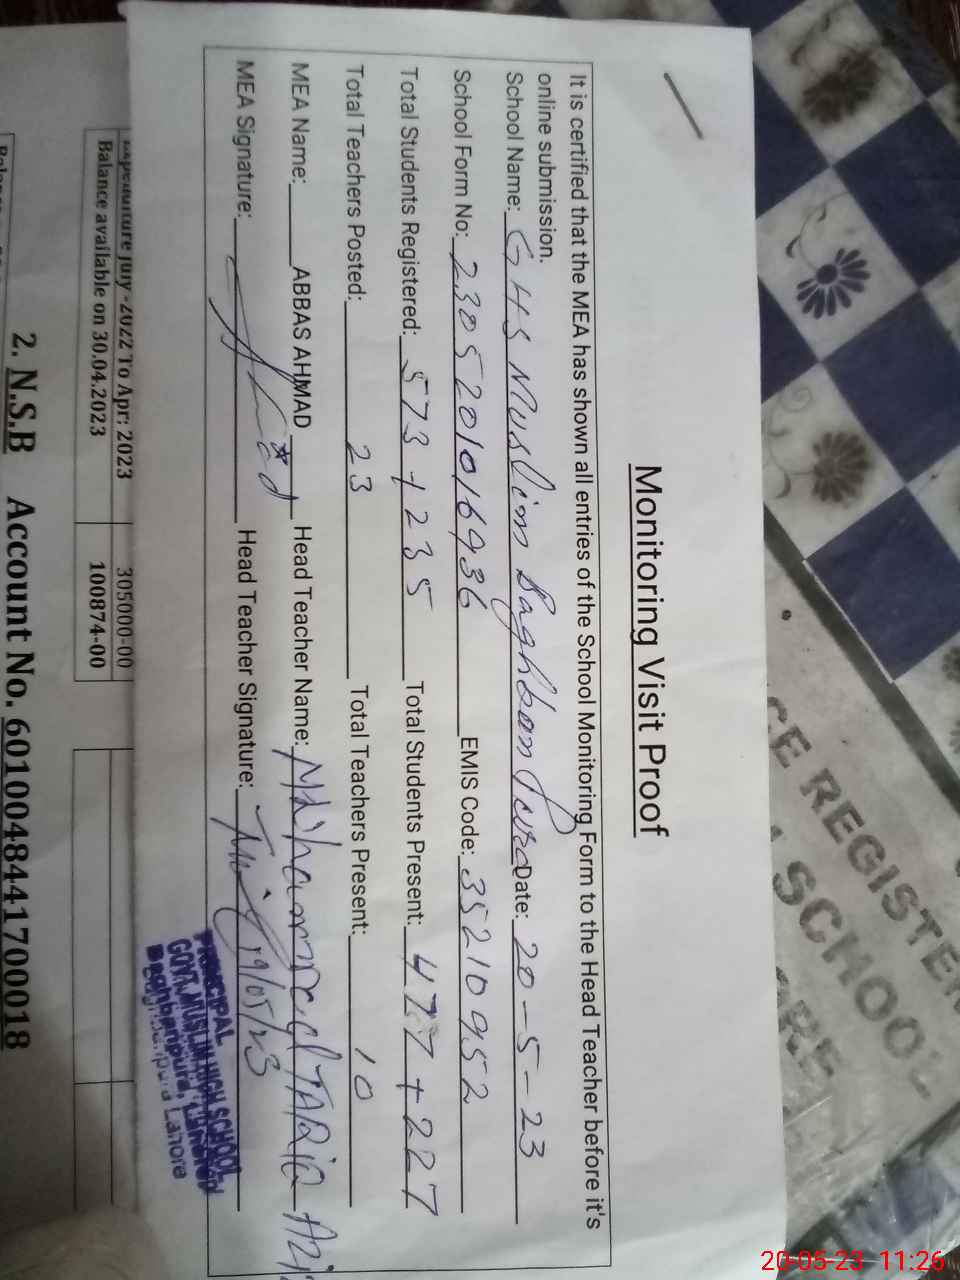 Monitoring Visit Proof
It is certified that the MEA has shown all entries of the School Monitoring Form to the Head Teacher before it's
online submission.
School Name: GHS Muslim Baghbanpura Date: 20-5-23
School Form No: 2305201016936 EMIS Code: 35210952
Total Students Registered: 573+235 Total Students Present: 477+227
Total Teachers Posted: 23 Total Teachers Present: 10
MEA Name: ABBAS AHMAD Head Teacher Name: Muhammad TARIQ
MEA Signature: Head Teacher Signature: 19/05/23
PRINCIPAL
GOVT. MUSLIM HIGH SCHOOL
Baghbanpura, Lahore
July-2022 To Apr: 2023 305000-00
Balance available on 30.04.2023 100874-00
2. N.S.B Account No. 6010048441700018
CE REGISTER
SCHOOL
20-05-23 11:26